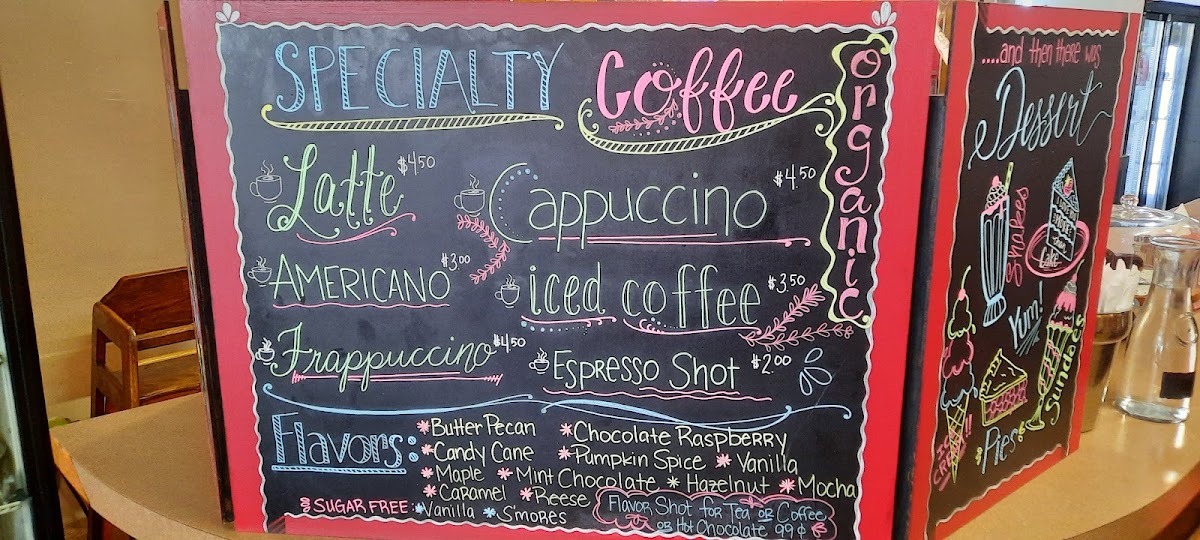 SPECIALTY Coffee
organic
Latte $4.50
Cappuccino $4.50
AMERICANO $3.00
iced coffee $3.50
Frappuccino $4.50
Espresso Shot $2.00
Flavors:
*Butter Pecan *Chocolate Raspberry
*Candy Cane *Pumpkin Spice *Vanilla
*Maple *Mint Chocolate *Hazelnut *Mocha
*Caramel *Reese
SUGAR FREE: *Vanilla *S'mores
Flavor Shot for Tea or Coffee
or Hot Chocolate 99¢
....and then there was
Dessert
Shakes
Cake
Yum!
Ice
Cream!!
Pies
Sundaes